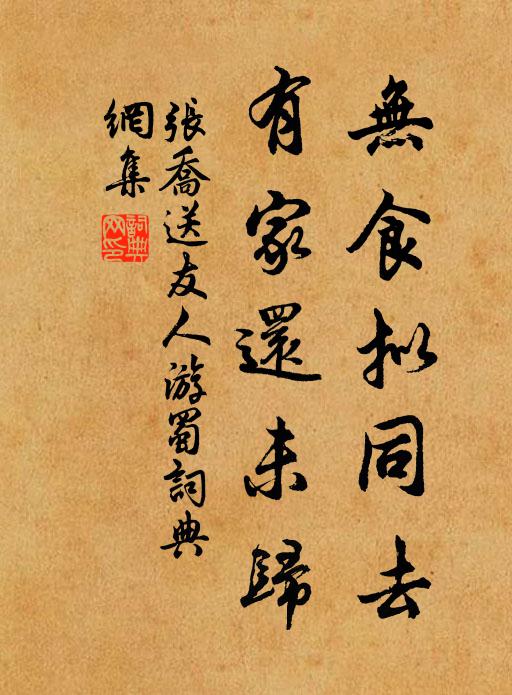 無食拟同去
有家還未歸
張喬送友人游蜀詞典
網集
詞典網印